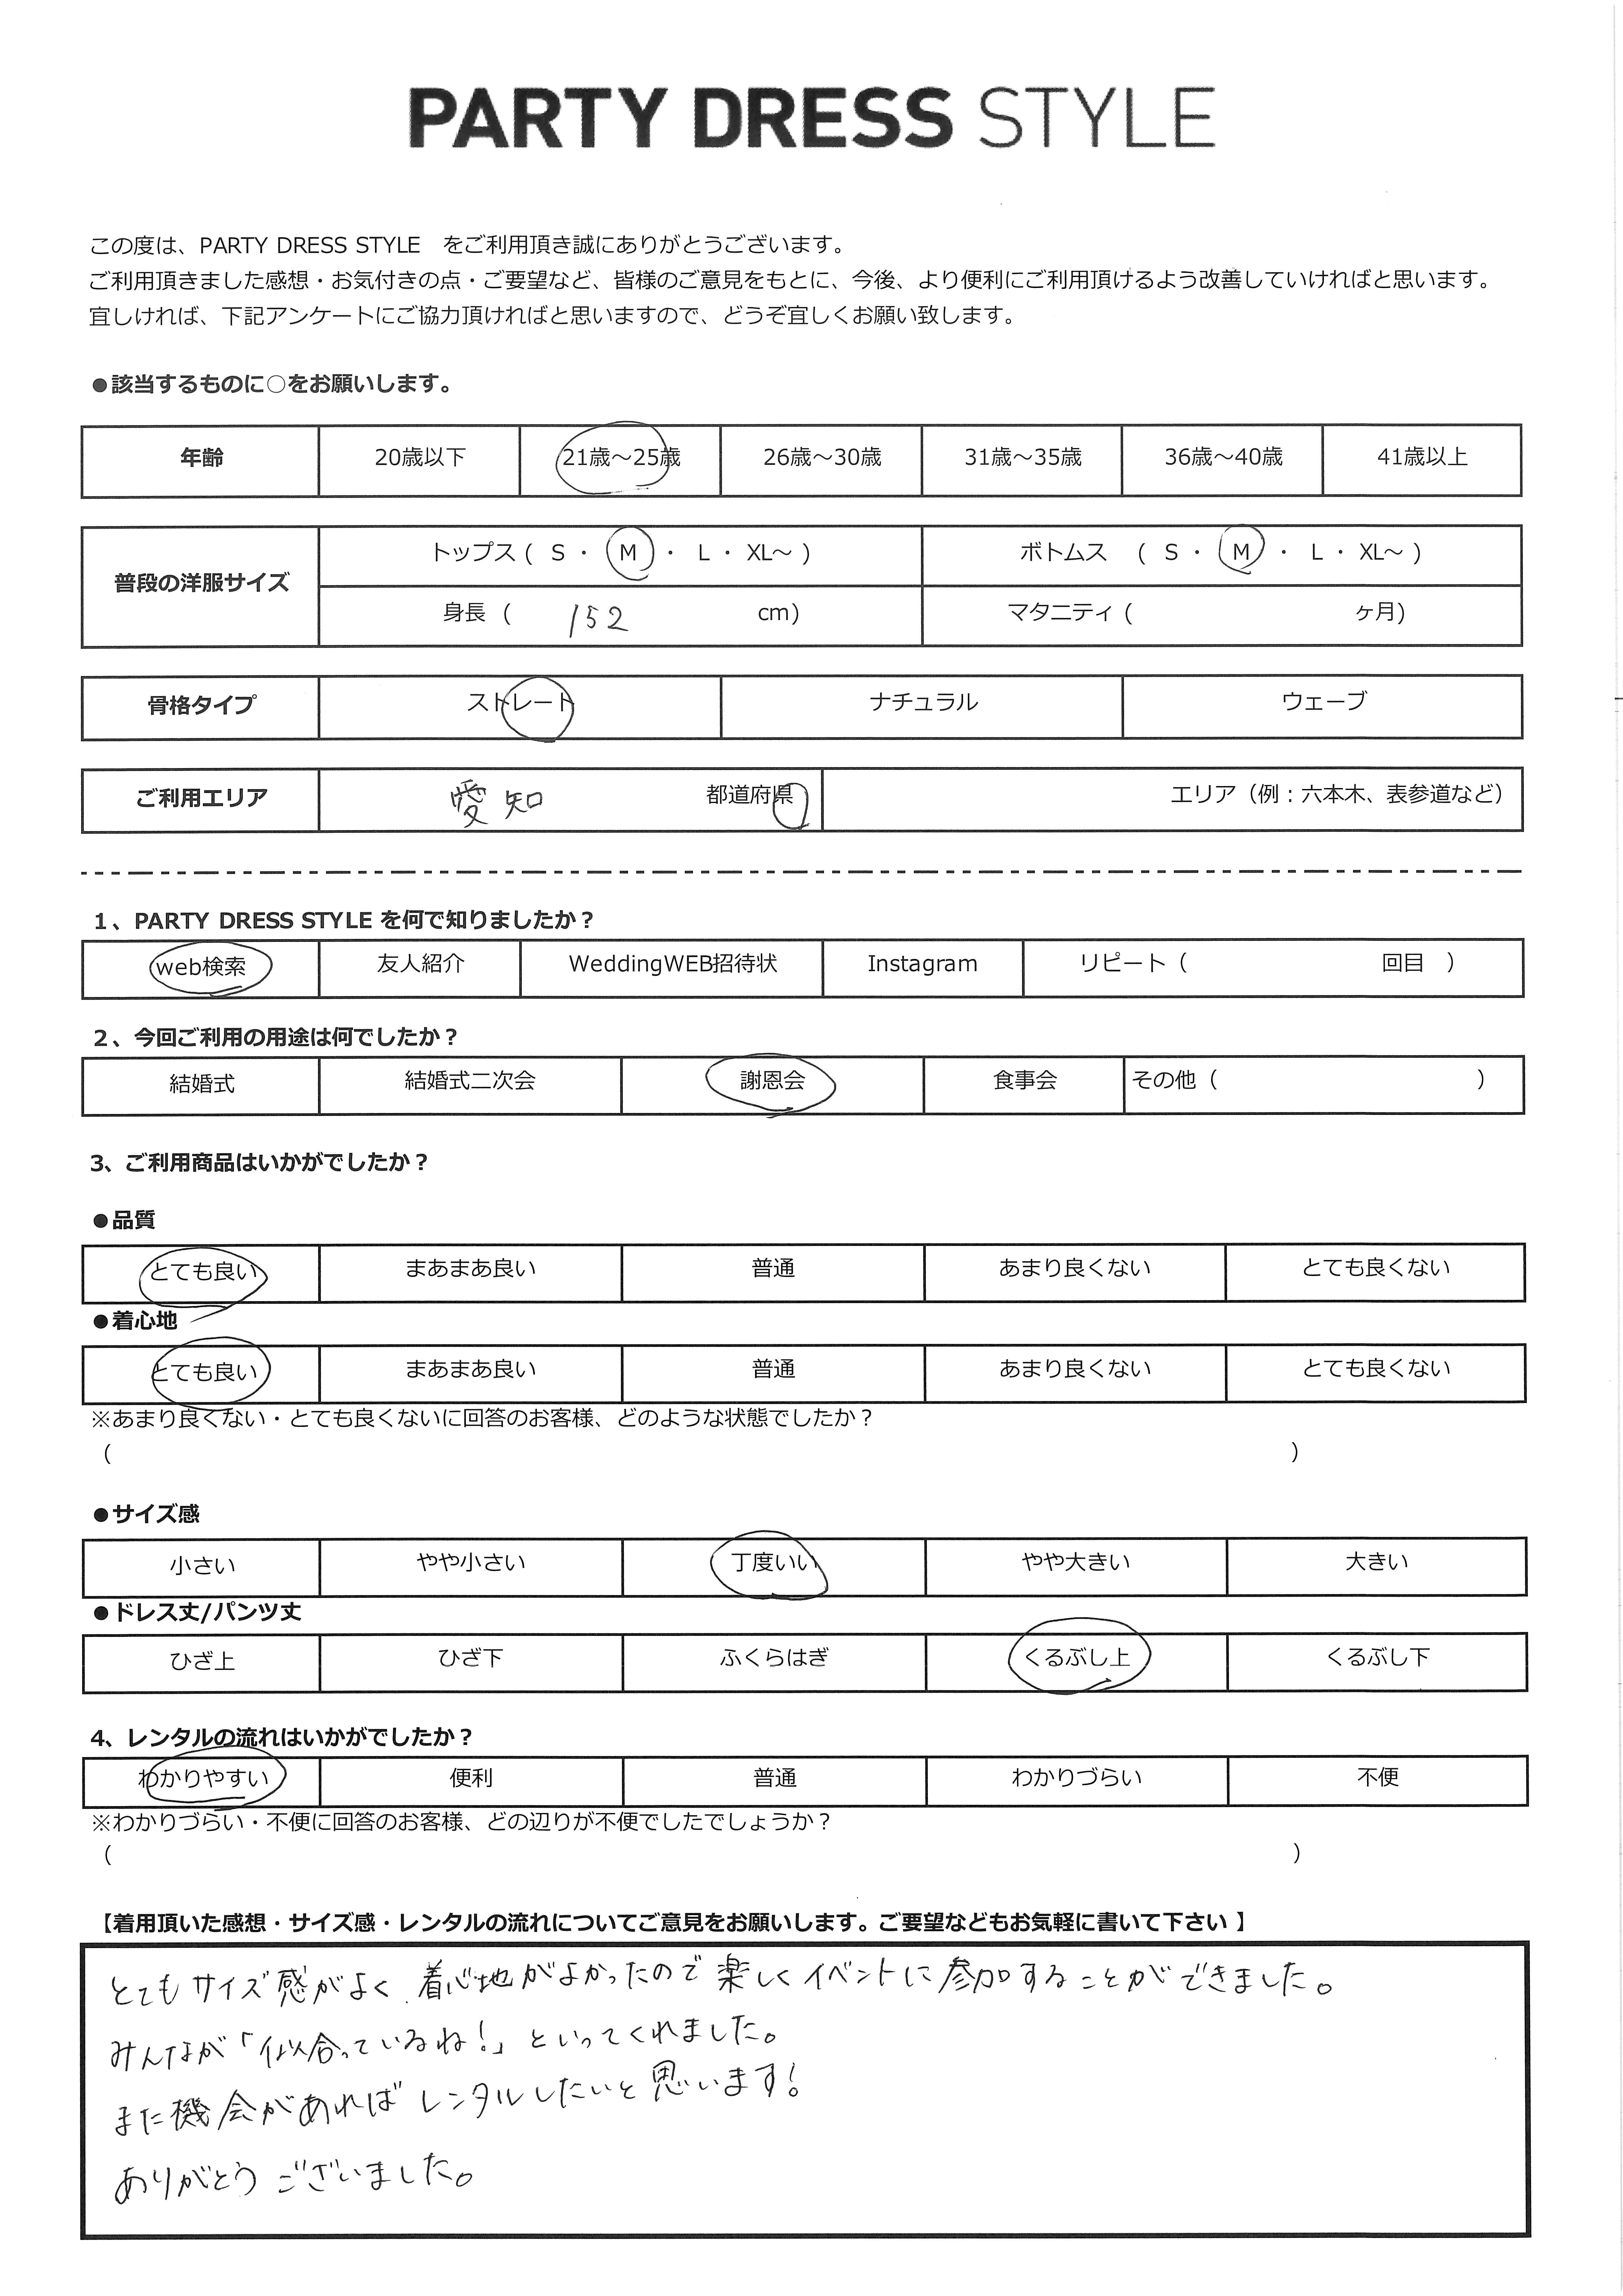 PARTY DRESS STYLE
この度は、PARTY DRESS STYLE　をご利用頂き誠にありがとうございます。
ご利用頂きました感想・お気付きの点・ご要望など、皆様のご意見をもとに、今後、より便利にご利用頂けるよう改善していければと思います。
宜しければ、下記アンケートにご協力頂ければと思いますので、どうぞ宜しくお願い致します。
●該当するものに○をお願いします。
年齢 20歳以下 21歳～25歳 26歳～30歳 31歳～35歳 36歳～40歳 41歳以上
普段の洋服サイズ トップス ( S ・ M ・ L ・ XL～ ) ボトムス ( S ・ M ・ L ・ XL～ )
身長 ( 152 cm) マタニティ ( ヶ月)
骨格タイプ ストレート ナチュラル ウェーブ
ご利用エリア 愛知 都道府県 エリア（例：六本木、表参道など）
1、PARTY DRESS STYLE を何で知りましたか？
web検索 友人紹介 WeddingWEB招待状 Instagram リピート（ 回目 ）
2、今回ご利用の用途は何でしたか？
結婚式 結婚式二次会 謝恩会 食事会 その他（ ）
3、ご利用商品はいかがでしたか？
●品質
とても良い まあまあ良い 普通 あまり良くない とても良くない
●着心地
とても良い まあまあ良い 普通 あまり良くない とても良くない
※あまり良くない・とても良くないに回答のお客様、どのような状態でしたか？
（ ）
●サイズ感
小さい やや小さい 丁度いい やや大きい 大きい
●ドレス丈/パンツ丈
ひざ上 ひざ下 ふくらはぎ くるぶし上 くるぶし下
4、レンタルの流れはいかがでしたか？
わかりやすい 便利 普通 わかりづらい 不便
※わかりづらい・不便に回答のお客様、どの辺りが不便でしたでしょうか？
（ ）
【着用頂いた感想・サイズ感・レンタルの流れについてご意見をお願いします。ご要望などもお気軽に書いて下さい 】
とてもサイズ感がよく、着心地がよかったので楽しくイベントに参加することができました。
みんなが「似合っているね！」といってくれました。
また機会があればレンタルしたいと思います！
ありがとうございました。